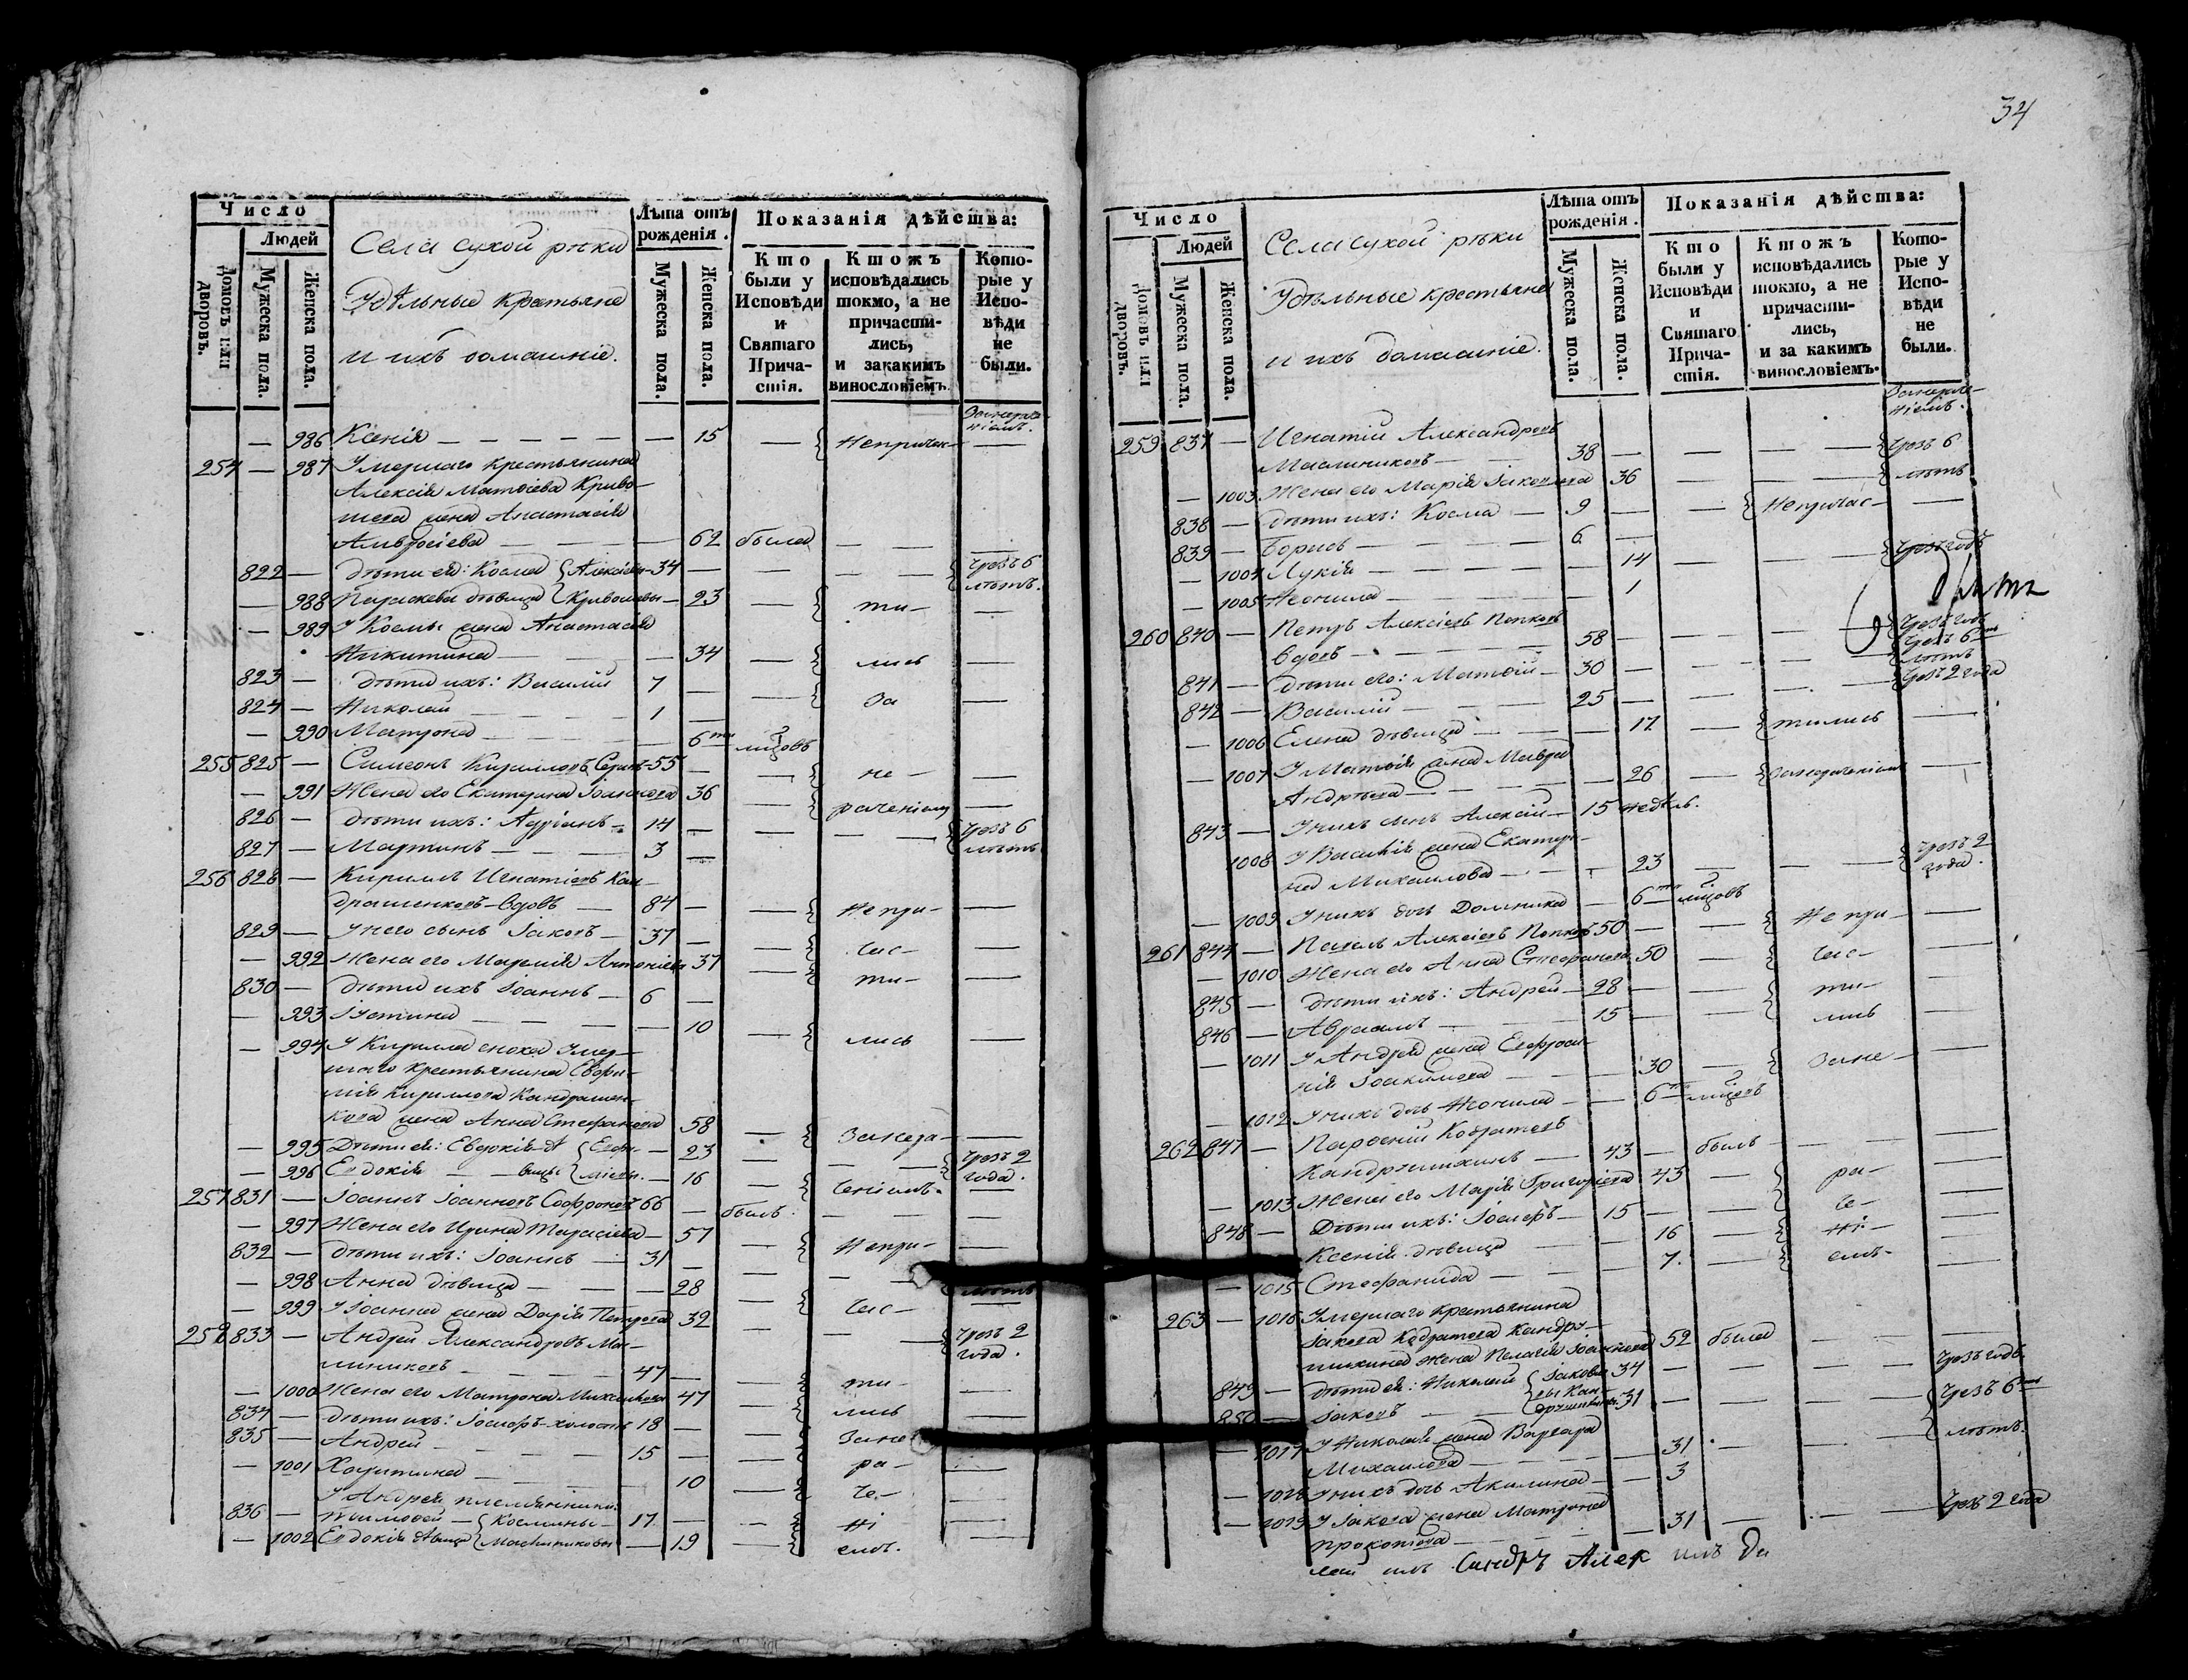 34
Число
Людей
Домовъ или дворовъ.
Мужеска пола.
Женска пола.
Села сухой рѣки
Удѣльные крестьяне
и ихъ домашніе.
Лѣта отъ рожденія.
Мужеска пола.
Женска пола.
Показанія дѣйства:
Кто были у Исповѣди и Святаго Прича-стія.
Ктожъ исповѣдались токмо, а не причасти-лись, и закакимъ винословіемъ.
Кото-рые у Испо-вѣди не были.
— 986 Ксенія — — 15 — Непричас- —
254 — 987 Умершаго крестьянина
Алексія Матѳіева Криво-
шеева жена Анастасія
Амвросіева — — 62 была — —
822 — дѣти ея: Косма { Алексіевы 34 — — — { Чрезъ 6
— 988 Параскева дѣвица { Кривошеевы — 23 — { ти — лѣтъ.
— 989 У Космы жена Анастасія
Никитина — — 34 — { лись —
823 — дѣти ихъ: Василій 7 — — { За —
824 — Николай — 1 —
— 990 Матрона — — 6ти мцовъ
255 825 — Симеонъ Кирилловъ 55 — — { не — —
— 991 Жена его Екатерина Іоаннова 36 — { раченіемъ —
826 — дѣти ихъ: Адріанъ — 14 — — — { Чрезъ 6
827 — Мартинъ — 3 — лѣтъ
256 828 — Кириллъ Игнатіевъ Кан-
драшенковъ — вдовъ — 84 — — { Непри- —
829 — У него сынъ Іаковъ — 37 — — { час- —
— 992 Жена его Марѳа Антоніева 37 — { ти- —
830 — дѣти ихъ Іоаннъ — 6 —
— 993 Іустина — — 10 — { лись —
— 994 У Кирилла сноха умер-
шаго крестьянина Евфи-
мія Кириллова Кандрашен-
кова жена Анна Стефанова 58 — { Занера- —
— 995 Дѣти ея: Евдокія { Евфи- — 23 — — { Чрезъ 2
— 996 Евдокія — вицы { міевы. — 16 — { ченіемъ. года.
257 831 — Іоаннъ Іоанновъ Софроновъ 66 — былъ — —
— 997 Жена его Ирина Тарасіева — 57 — { Непри- —
832 — дѣти ихъ: Іоаннъ — 31 —
— 998 Анна дѣвица — — 28 лѣтъ
— 999 У Іоанна жена Дарія Петрова 32 — { час- —
258 833 — Андрей Александровъ Ма-
линиковъ — 47 — — — { Чрезъ 2 года.
— 1000 Жена его Матрона Михайлова 47 — { ти- —
834 — дѣти ихъ: Іосифъ — холостъ 18 — { лись —
835 — Андрей — 15 — — { Зане —
— 1001 Харитина — — 10 — { ра- —
У Андрея племянники:
836 — Тимоѳей — { Космины — 17 — — { ні —
— 1002 Евдокія дѣвица { Масниковы — 19 — { емъ. —
Число
Людей
Домовъ или дворовъ.
Мужеска пола.
Женска пола.
Села сухой рѣки
Удѣльные крестьяне
и ихъ домашніе.
Лѣта отъ рожденія.
Мужеска пола.
Женска пола.
Показанія дѣйства:
Кто были у Исповѣди и Святаго Прича-стія.
Ктожъ исповѣдались токмо, а не причасти-лись, и за какимъ винословіемъ.
Кото-рые у Испо-вѣди не были.
259 837 — Игнатій Александровъ
Маслиниковъ — 38 — — — { Чрезъ 6
— 1003 Жена его Марія Іаковлева 36 — — { лѣтъ
838 — дѣти ихъ: Косма — 9 — — { Непричас- —
839 — Борисъ — 6 —
— 1004 Лукія — — 14 — — { Чрезъ годъ
— 1005 Неонила — — 1
260 840 — Петръ Алексіевъ Попковъ
вдовъ — 58 — — — { Чрезъ годъ
841 — дѣти его: Матѳій — 30 — — — { Чрезъ 6ть лѣтъ
842 — Василій — 25 — — — { Чрезъ 2 года
— 1006 Елена дѣвица — — 17 — { тились —
— 1007 У Матѳія жена Мавра
Андреева — — 26 — { Занераченіемъ —
843 — У нихъ сынъ Алексій — 15 недѣль.
1008 У Василія жена Екатери-
на Михаилова — — 23 — — { Чрезъ 2 года.
— 1009 У нихъ дочь Домника — 6ти мцовъ
261 844 — Павелъ Алексіевъ Попковъ 50 — — { Непри- —
— 1010 Жена его Анна Стефанова 50 — { час- —
845 — дѣти ихъ: Андрей — 28 — — { ти- —
846 — Авраамъ — 15 — — лись —
— 1011 У Андрея жена Евфроси-
нія Іоакимова — — 30 — { Зане- —
— 1012 У нихъ дочь Неонила — 6ти мцовъ
262 847 — Парѳеній Кодратовъ
Кандрушкинъ — 43 — былъ — —
— 1013 Жена его Марія Григоріева 43 — { ра- —
848 — Дѣти ихъ: Іосифъ — 15 — — { че- —
Ксенія дѣвица — — 16 — { ні- —
— 1015 Стефанида — — 7 — { емъ- —
263 — 1016 Умершаго крестьянина
Іакова Кодратова Кандру-
шкина жена Пелагія Іоаннова 52 была — —
849 — дѣти ея: Николай { Іаковле- 34 — — — Чрезъ годъ.
850 — Іаковъ — { вы Кан-друшкины. 31 — — — { Чрезъ 6ть
— 1017 У Николая жена Варвара
Михаилова — — 31 — — лѣтъ.
— 1018 У нихъ дочь Акилина — — 3
— 1019 У Іакова жена Матрона
Прокопіева — — 31 — — Чрезъ 2 года